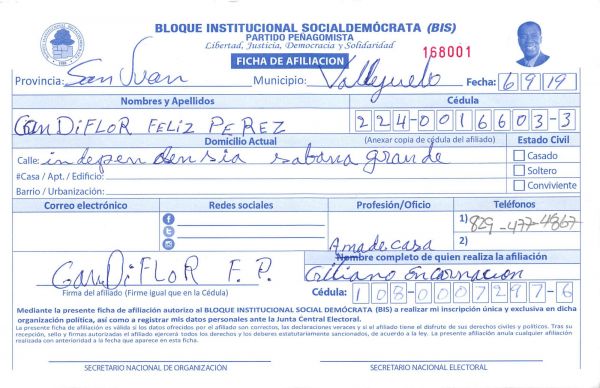 BLOQUE INSTITUCIONAL SOCIALDEMÓCRATA (BIS)
PARTIDO PEÑAGOMISTA
Libertad, Justicia, Democracia y Solidaridad
168001
FICHA DE AFILIACION
Provincia: San Juan Municipio: Vallejuelo Fecha: 6/9/19
Nombres y Apellidos Cédula
CanDiFLOR FELIZ PEREZ 224-0016603-3
Domicilio Actual (Anexar copia de cédula del afiliado) Estado Civil
Calle: independensia sabana grande Casado
#Casa / Apt. / Edificio: Soltero
Barrio / Urbanización: Conviviente
Correo electrónico Redes sociales Profesión/Oficio Teléfonos
1) 829-477-4867
Amadecasa 2)
Nombre completo de quien realiza la afiliación
CanDiFLOR F. P. Giliano Encarnacion
Firma del afiliado (Firme igual que en la Cédula) Cédula: 108-0007297-6
Mediante la presente ficha de afiliación autorizo al BLOQUE INSTITUCIONAL SOCIAL DEMÓCRATA (BIS) a realizar mi inscripción única y exclusiva en dicha
organización política, así como a registrar mis datos personales ante la Junta Central Electoral.
La presente ficha de afiliación es válida si los datos ofrecidos por el afiliado son correctos, las declaraciones veraces y si el afiliado tiene el disfrute de sus derechos civiles y políticos. Tras su
recepción, sello y firmas autorizadas el afiliado ejercerá todos los derechos y los deberes estatutariamente sancionados, de acuerdo a la ley. La presente afiliación anula cualquier afiliación
realizada con anterioridad a la fecha que aparece en esta ficha.
SECRETARIO NACIONAL DE ORGANIZACIÓN SECRETARIO NACIONAL ELECTORAL